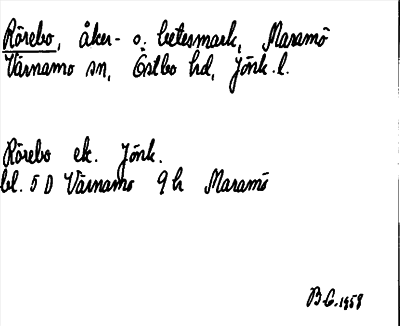 Rörebo, åker- o. betesmark, Maramö
Värnamo sn, Östbo hd, Jönk. l.
Rörebo ek. Jönk.
bl. 5 D Värnamo 9 h Maramö
B G. 1959